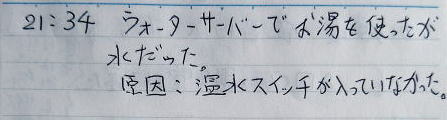 21:34 ウォーターサーバーでお湯を使ったが
水だった。
原因:温水スイッチが入っていなかった。